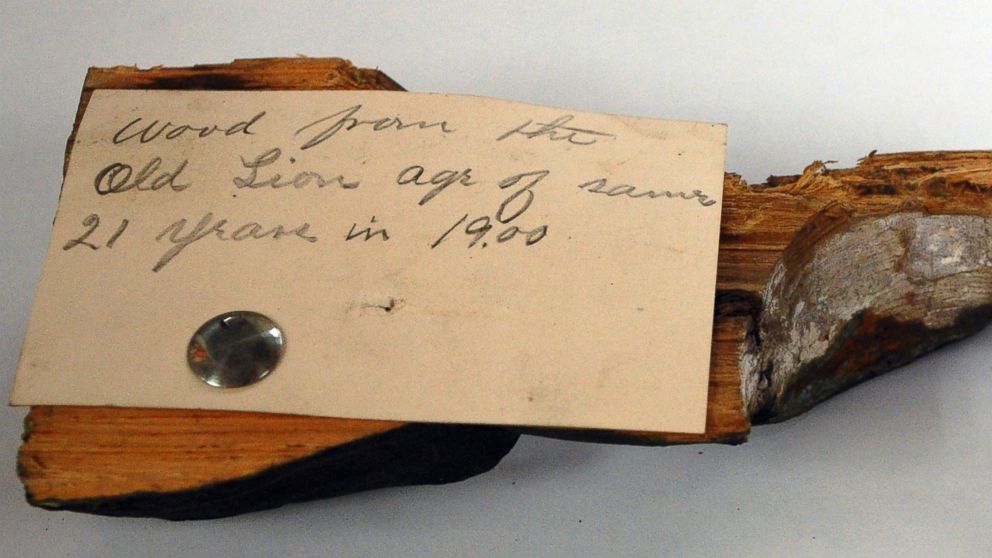 Wood from the
Old Lion age of same
21 years in 19.00